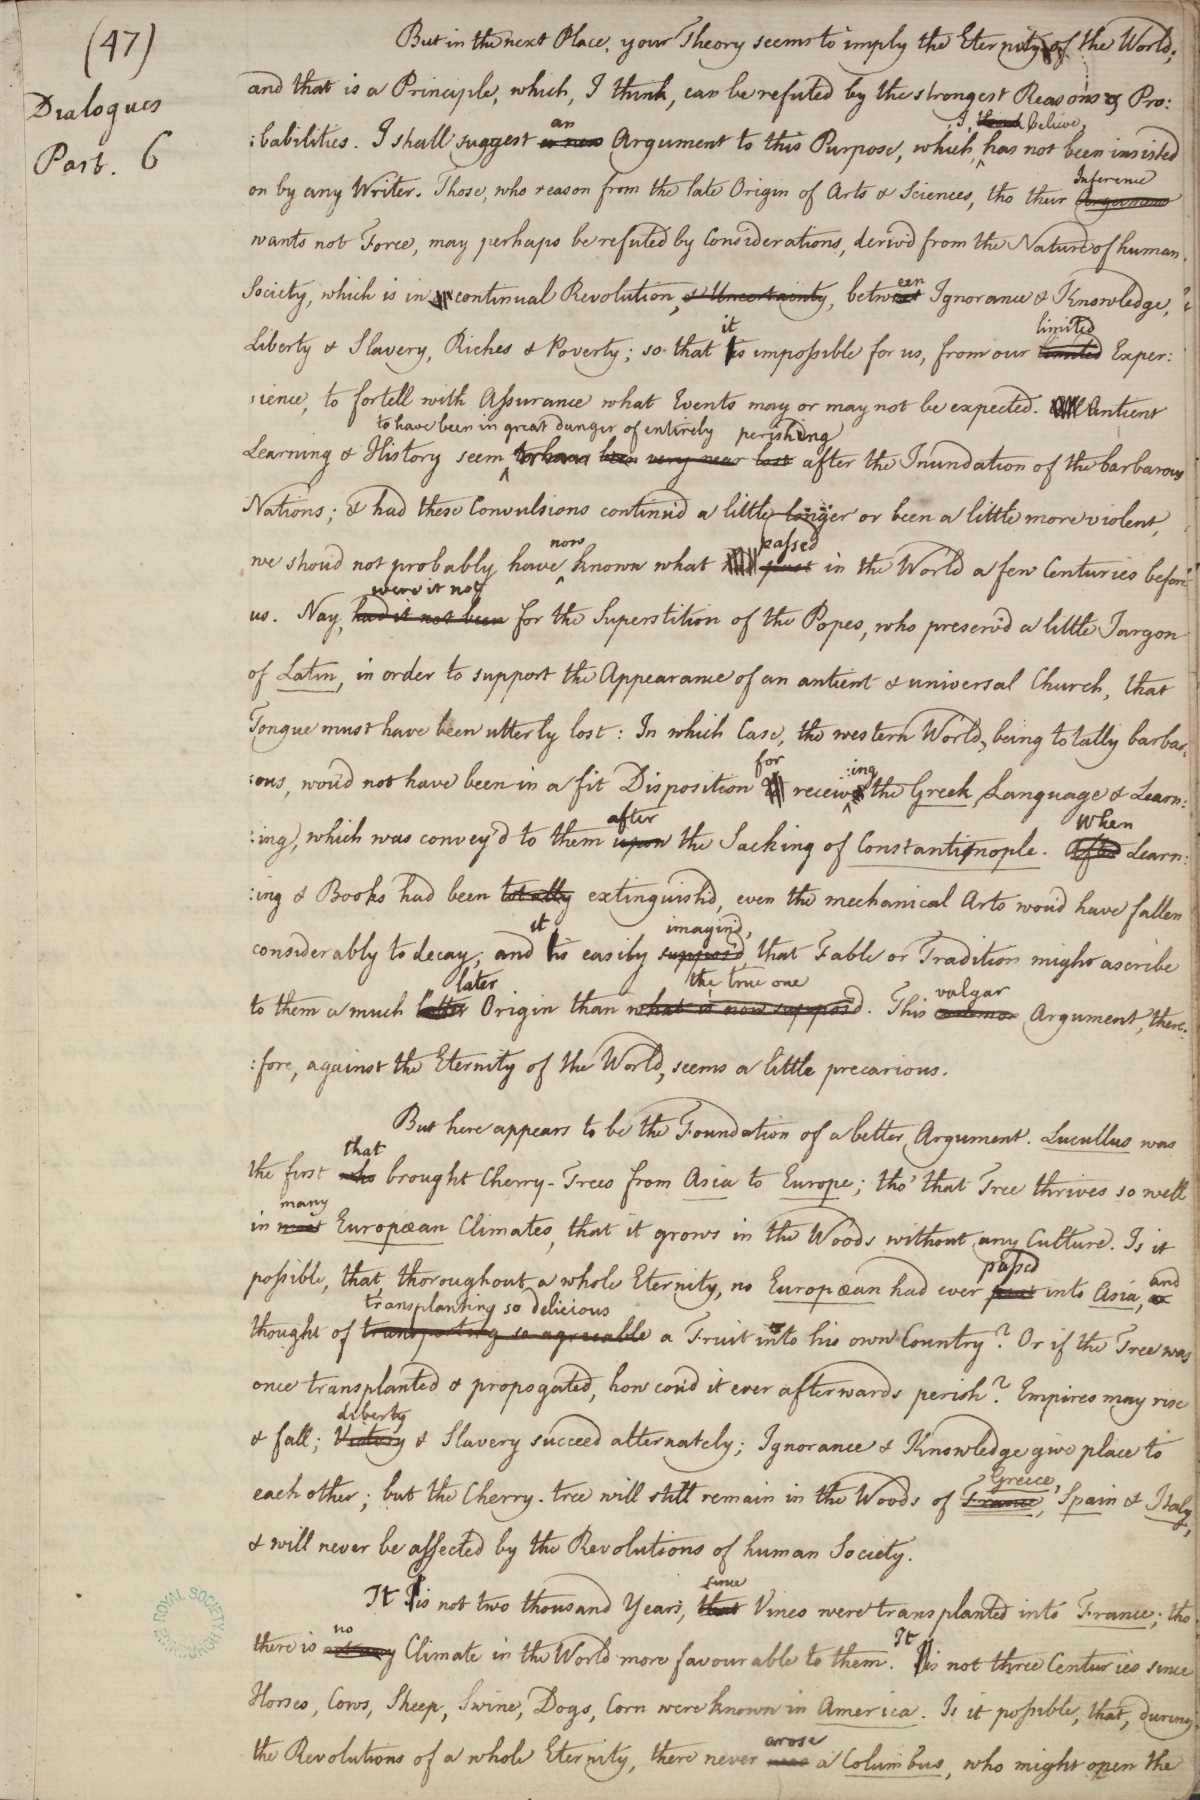 (47)
Dialogues
Part. 6
But in the next Place, your Theory seems to imply the Eternity of the World;
and that is a Principle, which, I think, can be refuted by the strongest Reasons & Pro:
I, believe,
an
:babilities. I shall suggest a new Argument to this Purpose, which, has not been insisted
Inference
on by any Writer. Those, who reason from the late Origin of Arts & Sciences, tho their Argument
wants not Force, may perhaps be refuted by Considerations, deriv'd from the Nature of human
een
Society, which is in continual Revolution, & Uncertainty, betwixt Ignorance & Knowledge,
it limited
Liberty & Slavery, Riches & Poverty; so that is impossible for us, from our Exper:
:ience, to fortell with Assurance what Events may or may not be expected. Antient
to have been in great danger of entirely perishing
Learning & History seem to have been very near lost after the Inundation of the barbarous
Nations; & had these Convulsions continu'd a little longer or been a little more violent,
now passed
we shoud not probably have known what past in the World a few Centuries before
were it not
us. Nay, had it not been for the Superstition of the Popes, who preserv'd a little Jargon
of Latin, in order to support the Appearance of an antient & universal Church, that
Tongue must have been utterly lost: In which Case, the western World, being totally barbar:
for :ing
:ous, woud not have been in a fit Disposition receive the Greek Language & Learn:
after When
:ing, which was convey'd to them upon the Sacking of Constantinople. After Learn:
:ing & Books had been totally extinguish'd, even the mechanical Arts woud have fallen
it imagin'd,
considerably to decay; and is easily suppos'd, that Fable or Tradition might ascribe
later the true one
to them a much latter Origin than what is now suppos'd. This vulgar
common Argument, there:
:fore, against the Eternity of the World, seems a little precarious.
But here appears to be the Foundation of a better Argument. Lucullus was
that
the first who brought Cherry-Trees from Asia to Europe; tho' that Tree thrives so well
many
in most Europæan Climates, that it grows in the Woods without any Culture. Is it
passed and
possible, that thoroughout a whole Eternity, no Europæan had ever past into Asia, or
transplanting so delicious
thought of transporting so agreeable a Fruit into his own Country? Or if the Tree was
once transplanted & propogated, how coud it ever afterwards perish? Empires may rise
Liberty
& fall; Victory & Slavery succeed alternately; Ignorance & Knowledge give place to
Greece,
each other; but the Cherry-tree will still remain in the Woods of France, Spain & Italy,
& will never be affected by the Revolutions of human Society.
since
It is not two thousand Years, that Vines were transplanted into France; tho
no It
there is not any Climate in the World more favourable to them. is not three Centuries since
Horses, Cows, Sheep, Swine, Dogs, Corn were known in America. Is it possible, that, during
arose
the Revolutions of a whole Eternity, there never was a Columbus, who might open the
ROYAL SOCIETY EDINBURGH